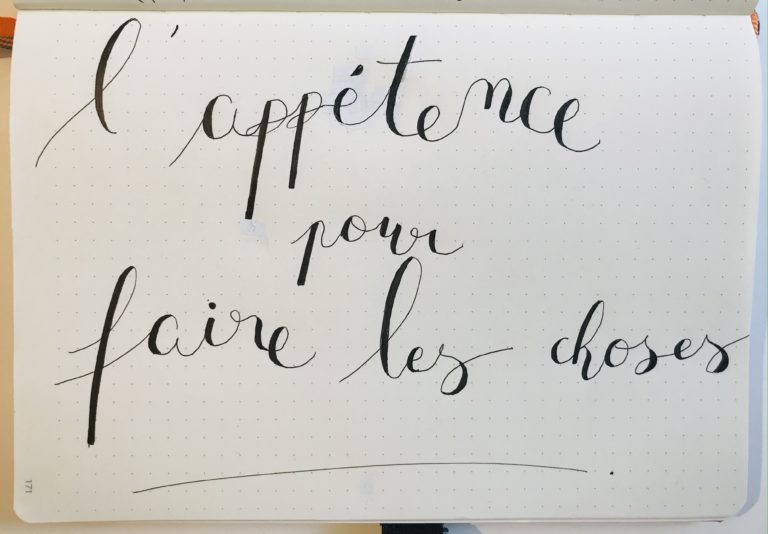 l'appétence
pour
faire les choses
171